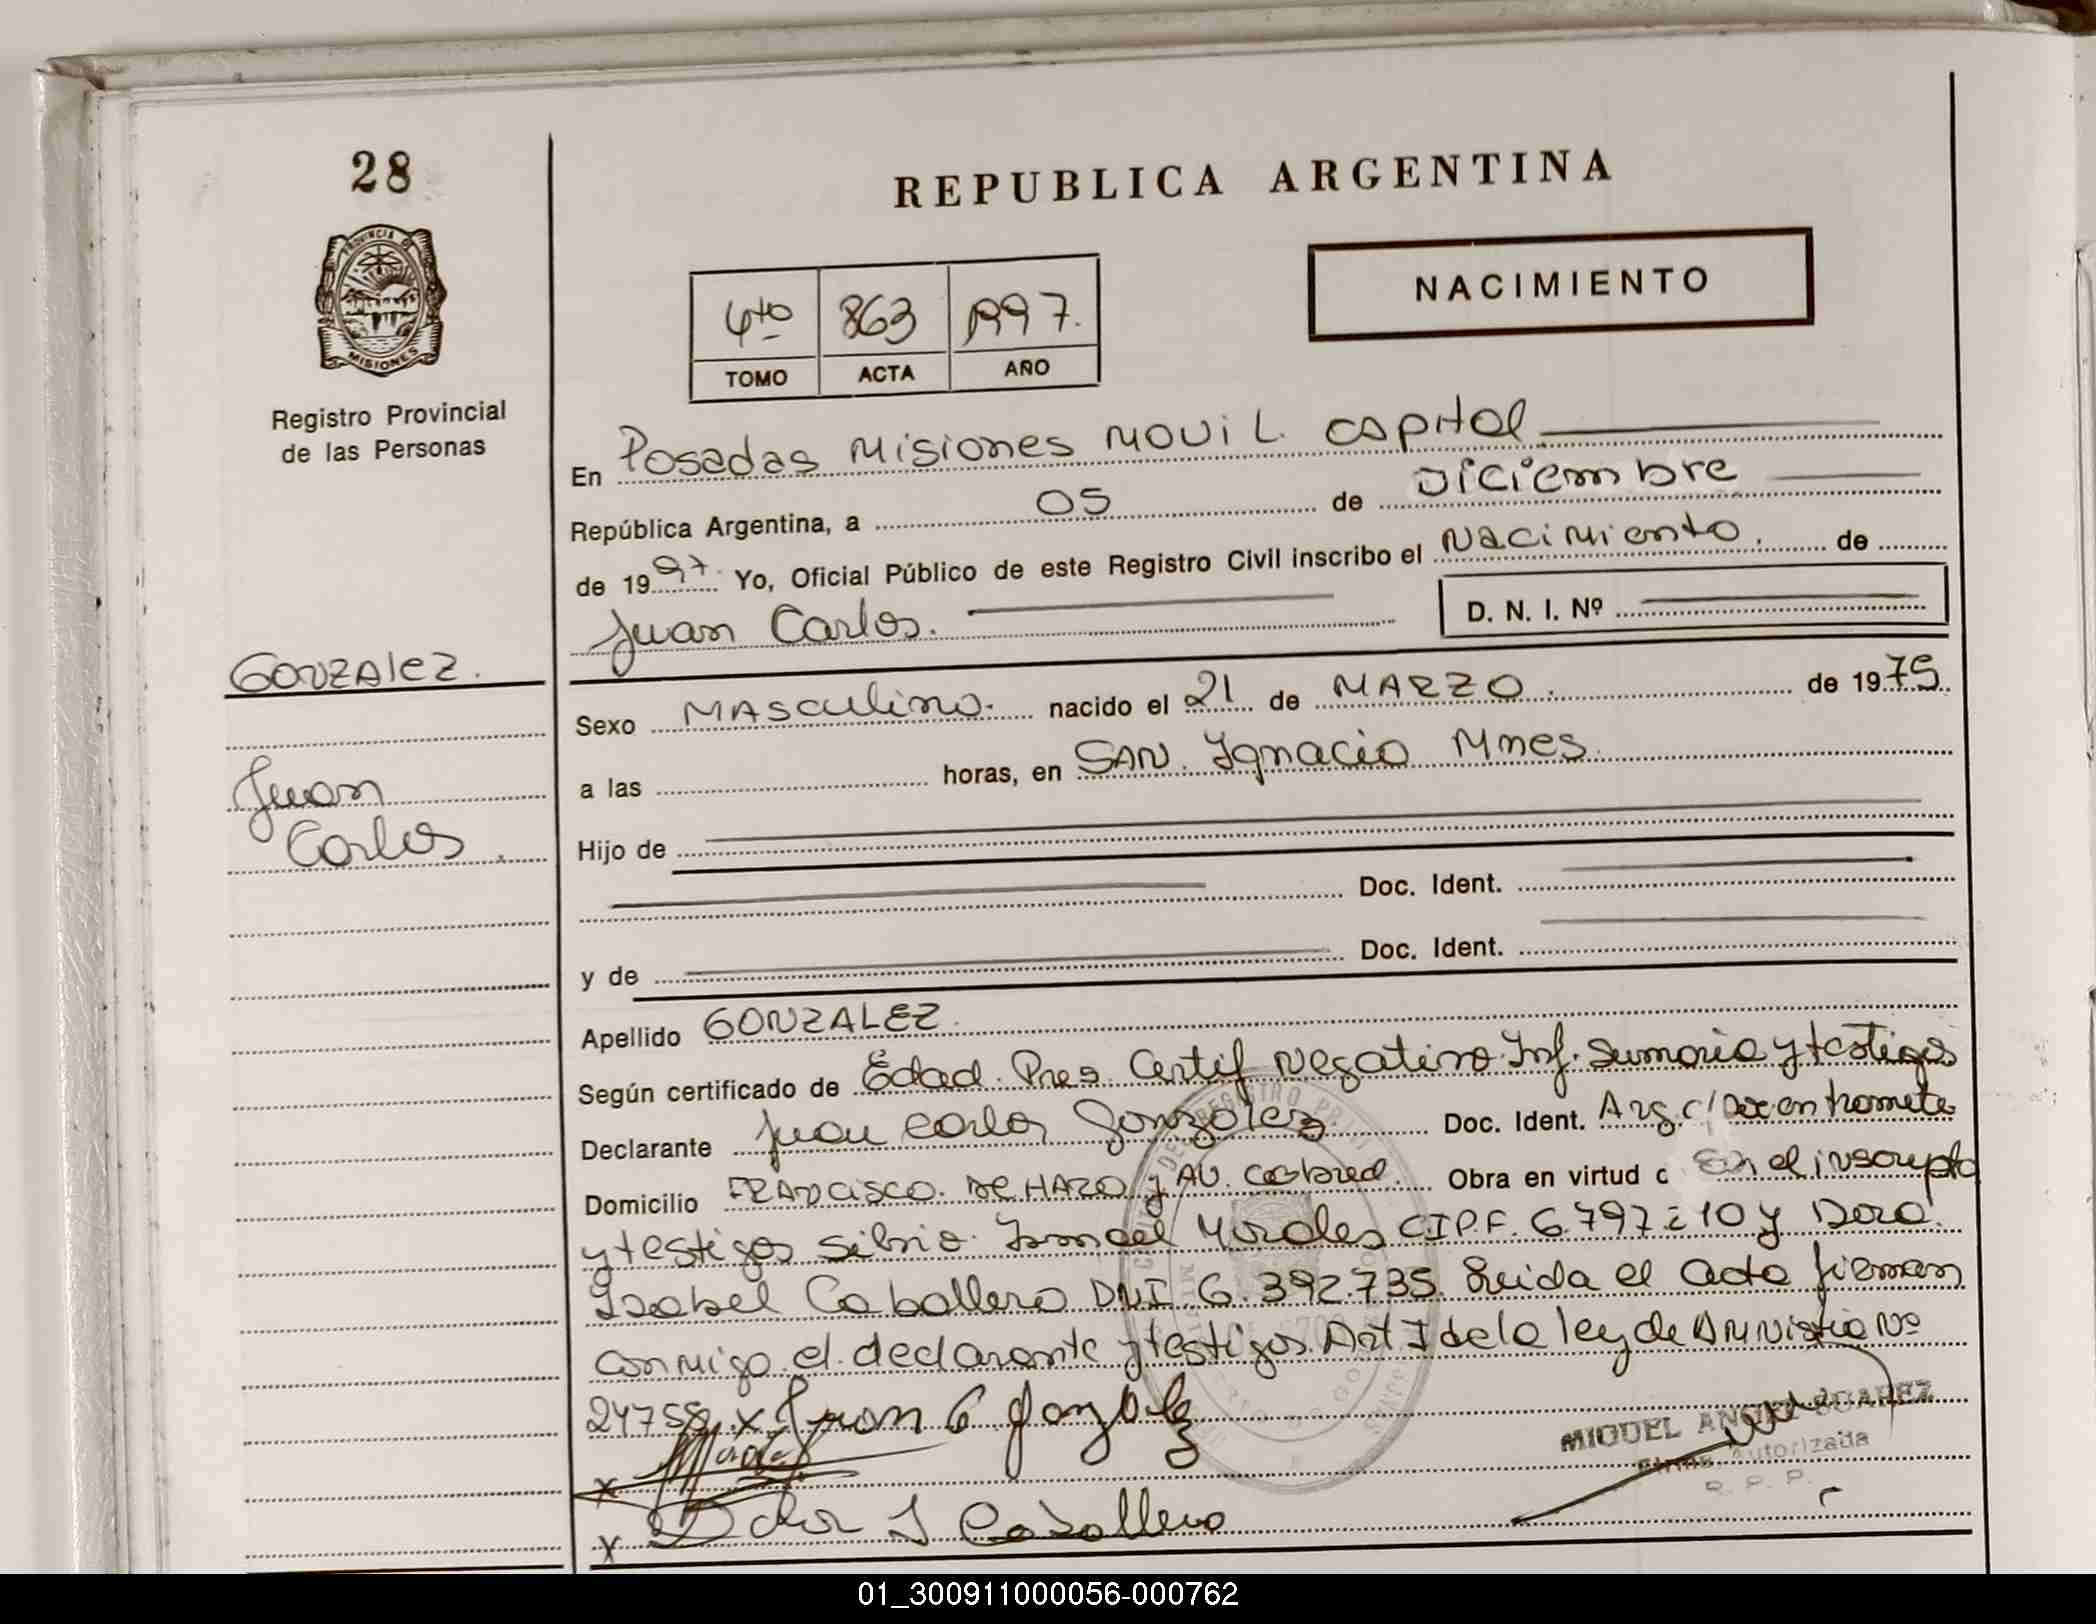 28
REPUBLICA ARGENTINA
PROVINCIA D
MISIONES
Registro Provincial
de las Personas
4to 863 1997.
TOMO ACTA AÑO
NACIMIENTO
En Posadas Misiones Movil Capital
República Argentina, a 05 de Diciembre
de 1997. Yo, Oficial Público de este Registro Civil inscribo el Nacimiento. de
Juan Carlos. D. N. I. Nº
GONZALEZ.
Juan
Carlos.
Sexo MAsculino. nacido el 21 de MARZO. de 1975
a las horas, en SAN. Ignacio Mnes.
Hijo de
Doc. Ident.
y de Doc. Ident.
Apellido GONZALEZ.
Según certificado de Edad. Pres. Certif Negativo. Inf. Sumaria y testigos
Declarante Juan Carlos Gonzalez Doc. Ident. Arg. c/Doc en tramete
Domicilio FRANcisco. DE HARO y AV. Cabred. Obra en virtud d el inscripto
y testigos Silvio. Ismael Morales C.I.P.F. 6.797 10 y Dora
Isabel Caballero DNI. 6.392.735. Leida el acta firman
conmigo el declarante y testigos. Art I de la ley de Amnistia Nº
24755. x Juan C Gonzalez
x
x Dora I Caballero
MIGUEL ANGEL SUAREZ
Firma Autorizada
R. P. P.
01_300911000056-000762